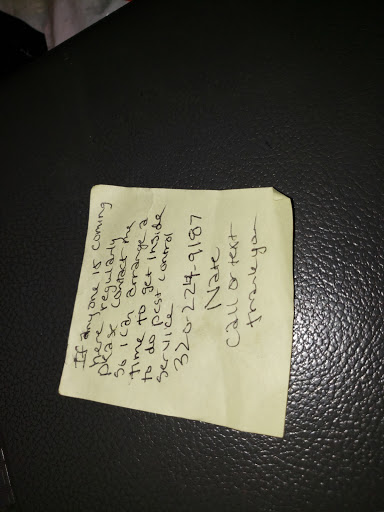 If anyone is coming
here regularly
please contact me
so i can arrange a
time to get inside
to do pest control
service
320-224-9187
Nate
call or text
thank you